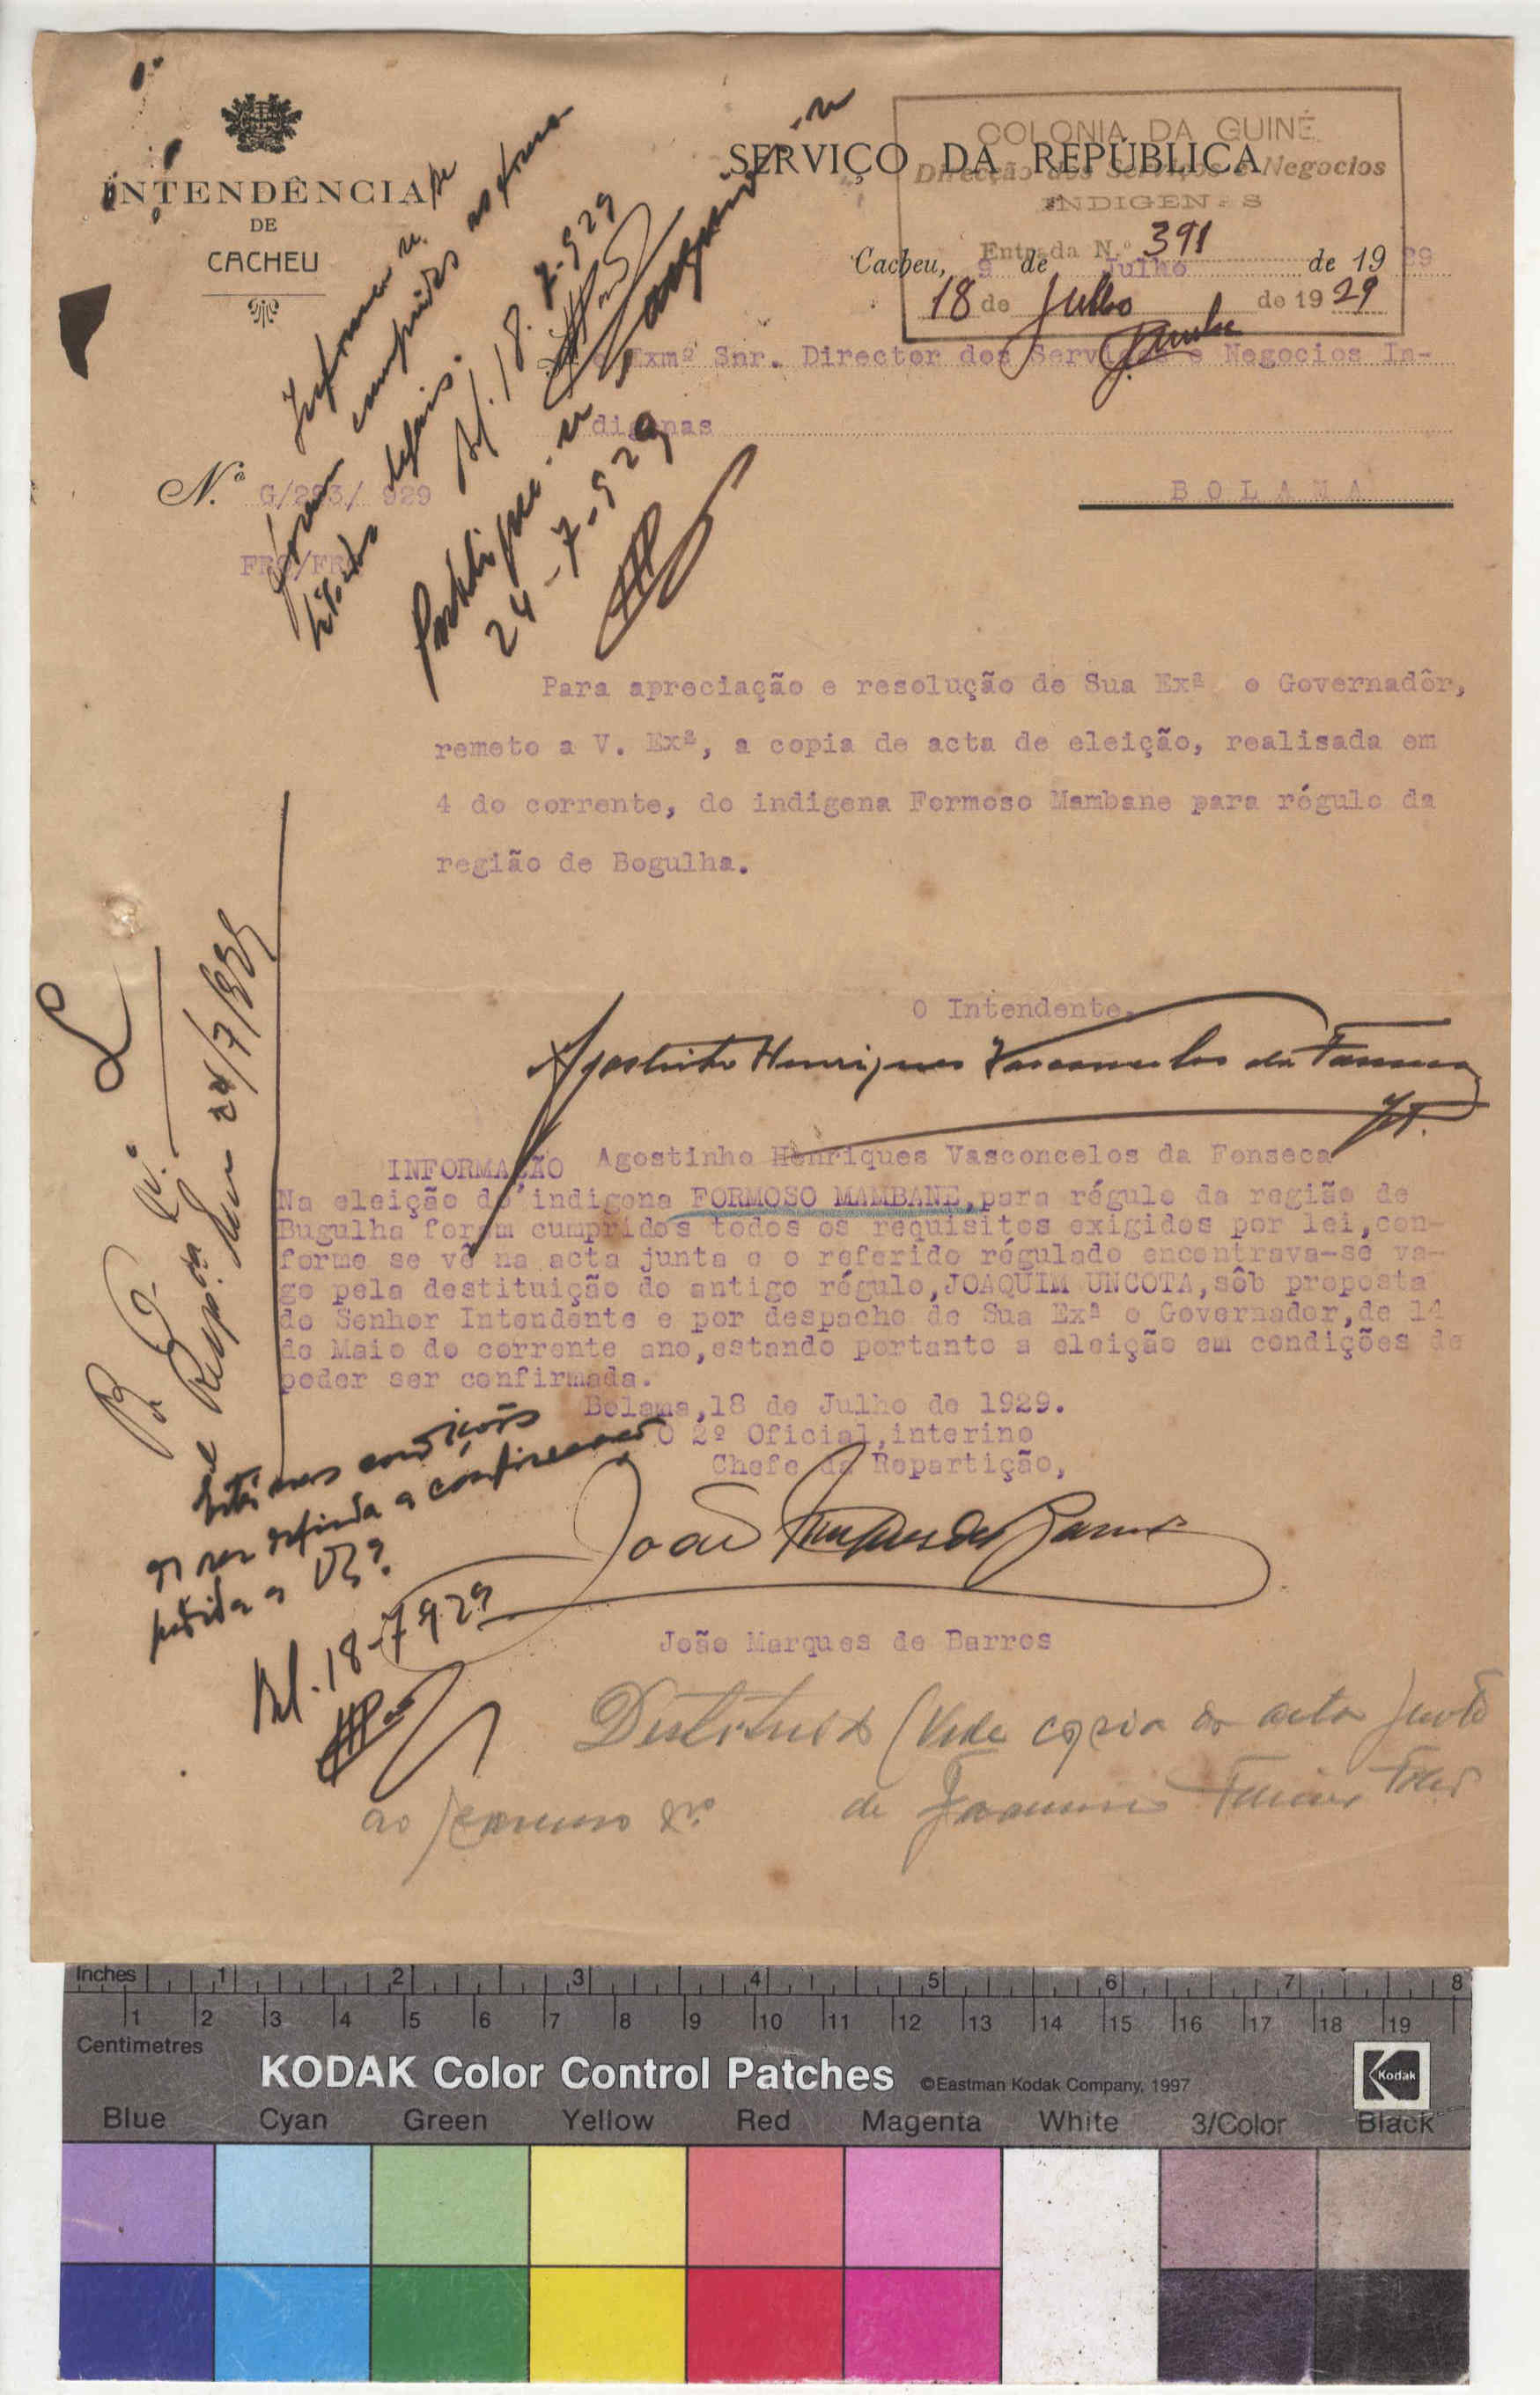 INTENDÊNCIA
DE
CACHEU
SERVIÇO DA REPÚBLICA
COLONIA DA GUINÉ
Direcção dos Serviços e Negocios
INDIGENAS
Entrada N.º 391
18 de Julho de 1929
Cacheu, 9 de Julho de 1929
Exmº Snr. Director dos Serviços e Negocios In-
digenas
BOLAMA
N.º G/293/ 929
FRO/FRO
Bl. 18.7.929
24-7-929
Para apreciação e resolução de Sua Exª o Governadôr,
remeto a V. Exª, a copia de acta de eleição, realisada em
4 do corrente, do indigena Formoso Mambane para régulo da
região de Bogulha.
O Intendente,
Agostinho Henriques Vasconcelos da Fonseca
Agostinho Henriques Vasconcelos da Fonseca
INFORMAÇÃO
Na eleição do indigena FORMOSO MAMBANE, para régulo da região de
Bugulha foram cumpridos todos os requisitos exigidos por lei, con-
forme se vê na acta junta e o referido régulado encontrava-se va-
go pela destituição do antigo régulo, JOAQUIM UNCOTA, sôb proposta
do Senhor Intendente e por despacho de Sua Exª o Governador, de 14
de Maio do corrente ano, estando portanto a eleição em condições de
poder ser confirmada.
Bolama, 18 de Julho de 1929.
O 2º Oficial, interino
Chefe da Repartição,
João Marques de Barros
João Marques de Barros
24/7/929
Está nas condições
de ser deferida a confirmação
pedida a
Bl. 18-7-929
Destituido (Vide copia da acta junto
ao processo nº de
Inches 1 2 3 4 5 6 7 8
1 2 3 4 5 6 7 8 9 10 11 12 13 14 15 16 17 18 19
Centimetres
KODAK Color Control Patches ©Eastman Kodak Company, 1997 Kodak
Blue Cyan Green Yellow Red Magenta White 3/Color Black